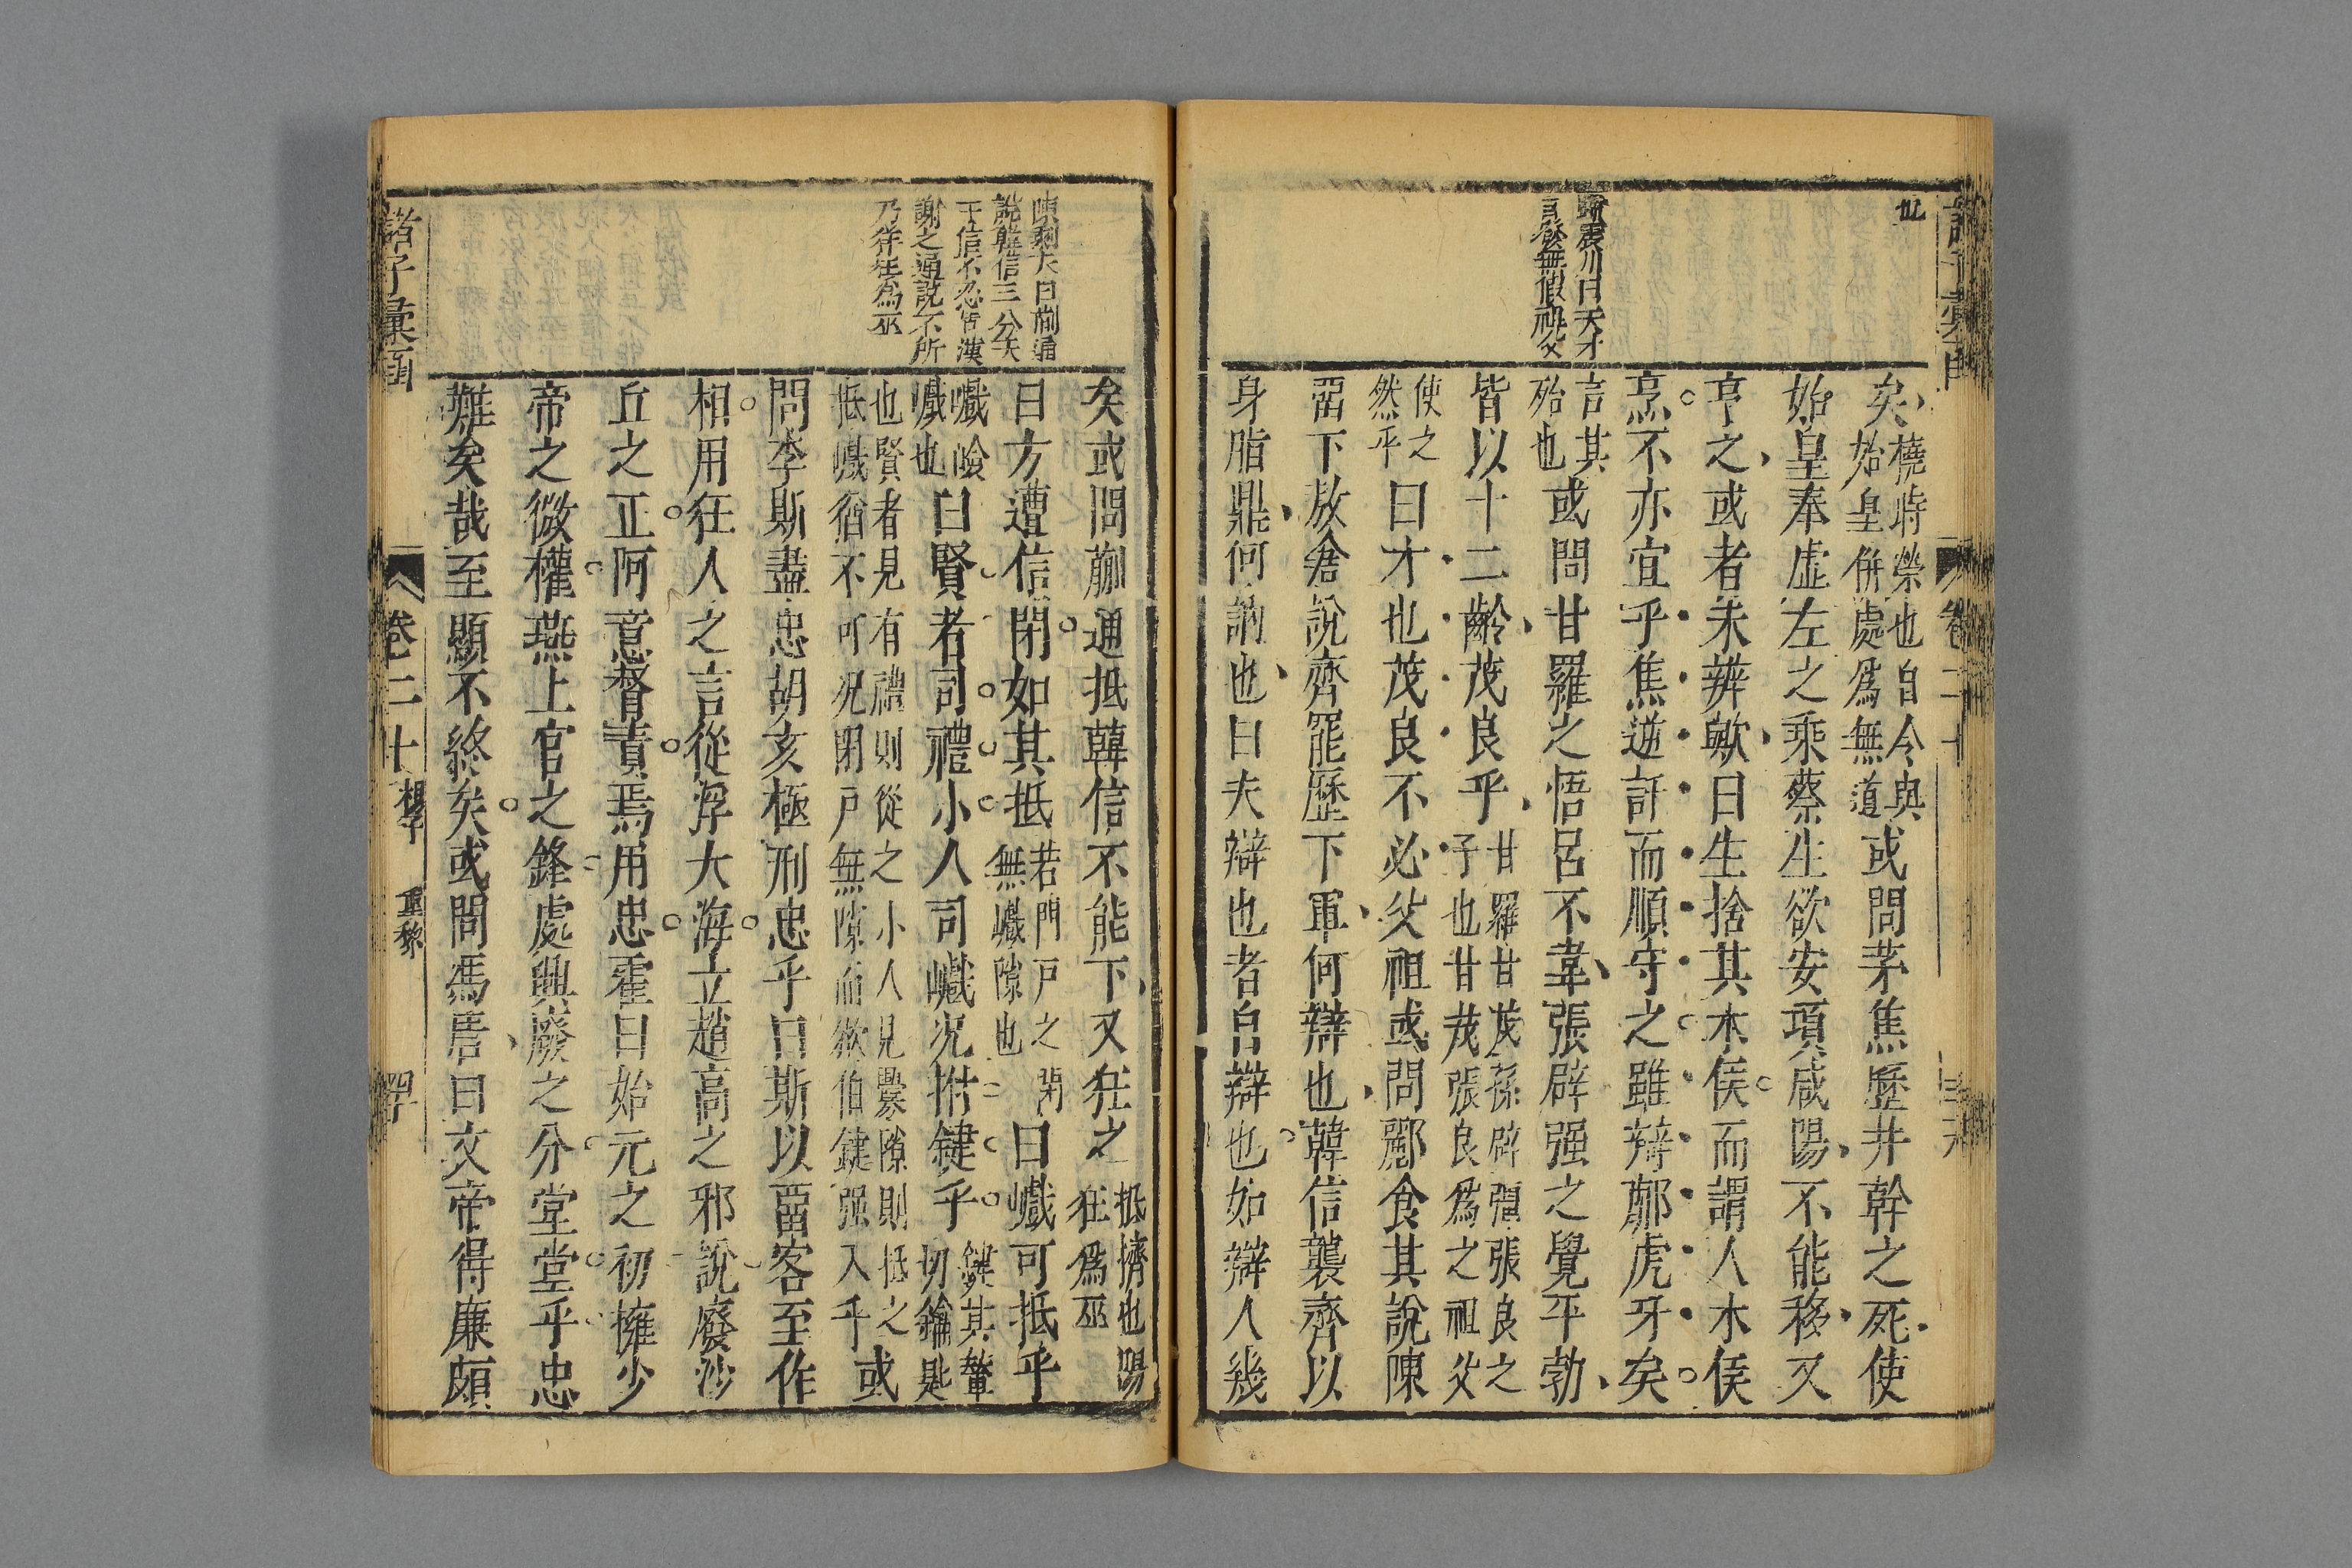 也
歸震川曰天才
自發無假祖父
矣橈時榮也自今與始皇併處爲無道或問茅焦歷井幹之死使
始皇奉虛左之乘蔡生欲安項咸陽不能移又
亨之或者未辨歟曰生捨其木侯而謂人木侯
烹不亦宜乎焦逆訐而順守之雖辯劘虎牙矣
言其殆也或問甘羅之悟呂不韋張辟强之覺平勃
皆以十二齡茂良乎甘羅甘茂孫辟彊張良之子也甘茂張良爲之祖父
使之然乎曰才也茂良不必父祖或問酈食其說陳
罶下敖倉說齊罷歷下軍何辯也韓信襲齊以
身脂鼎何訥也曰夫辯也者自辯也如辯人幾
卷二十
陳剩夫曰蒯通
說韓信三分天
下信不忍背漢
謝之通說不所
乃徉狂爲巫
矣或問蒯通抵韓信不能下又狂之抵擠也陽狂爲巫
曰方遭信閉如其抵若門戶之閉無巇隙也曰巇可抵乎
巇險巇也曰賢者司禮小人司巇况拊鍵乎鍵其輦切鑰匙
也賢者見有禮則從之小人見釁隙則抵之抵巇猶不可况閉戶無隙而欲伯鍵强入乎或
問李斯盡忠胡亥極刑忠乎曰斯以畱客至作
相用狂人之言從浮大海立趙高之邪說廢沙
丘之正阿意督責焉用忠霍曰始元之初擁少
帝之微權燕上官之鋒處興廢之分堂堂乎忠
難矣哉至顯不終矣或問馮唐曰文帝得廉頗
諸子彙函
卷二十 楊子 重黎 四十